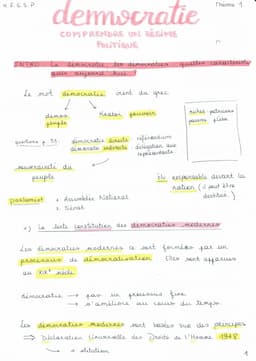 H.G.G.S.P
Thème 1
democratie
COMPRENDRE UN RÉGIME
POLITIQUE
INTRO La démocratie, les démocraties : quelles caractéristiques
aujourd'hui
Le mot démocratie vient du grec
démos Kratos pouvoir
peuple
riches = patriciens
pauvres plèbe
questions p 31
démocratie directe référendum
démocratie indirecte délégation aux
représentants
souveraineté du
peuple
élu responsable devant la
nation (il peut être
destitué)
parlement
Assemblée National
Sénat
La lente constitution des démocraties modernes
Les démocraties modernes se sont formées par un
processus de démocratisation Elles sont apparues
au XIXe siècle
démocratie → pas un processus fixe
→ s'améliore au cours du temps
Les démocraties modernes sont basées sur des principes
⇒ Déclaration Universelle des Droits de l'Homme 1948
1